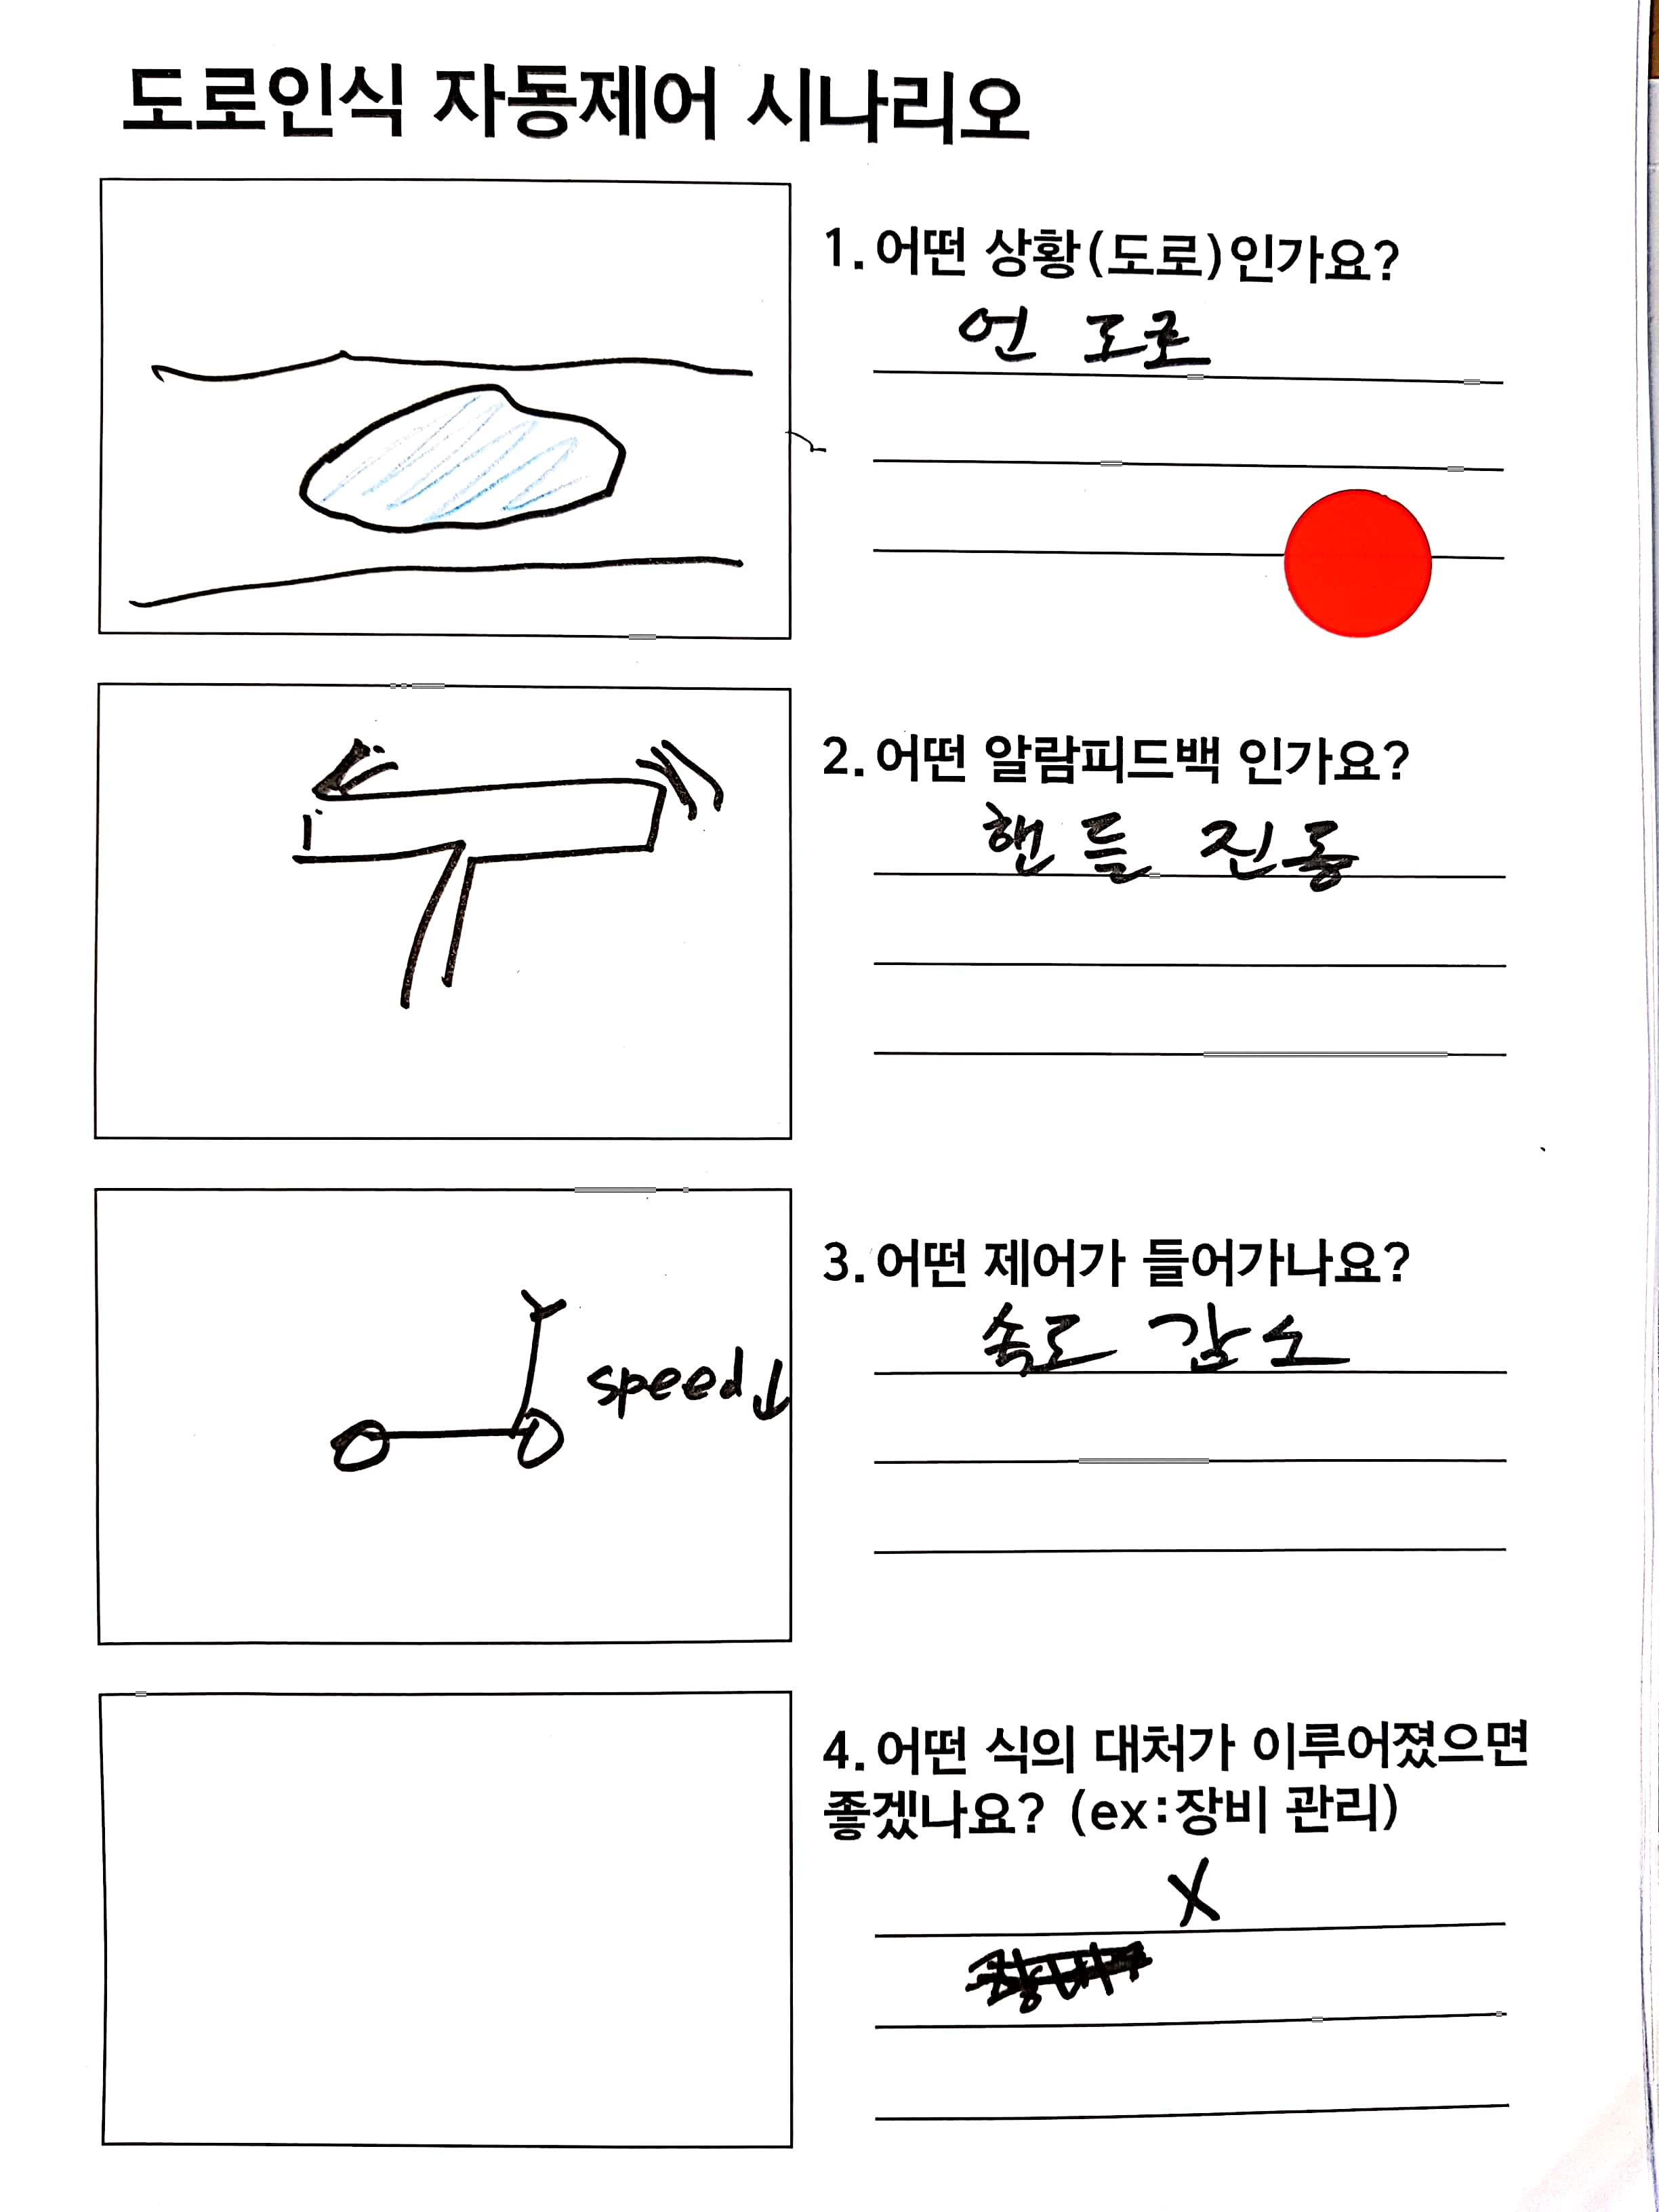 도로인식 자동제어 시나리오
1. 어떤 상황(도로)인가요?
언 도로
2. 어떤 알람피드백 인가요?
핸들 진동
3. 어떤 제어가 들어가나요?
속도 감소
speed↓
4. 어떤 식의 대처가 이루어졌으면
좋겠나요? (ex:장비 관리)
X